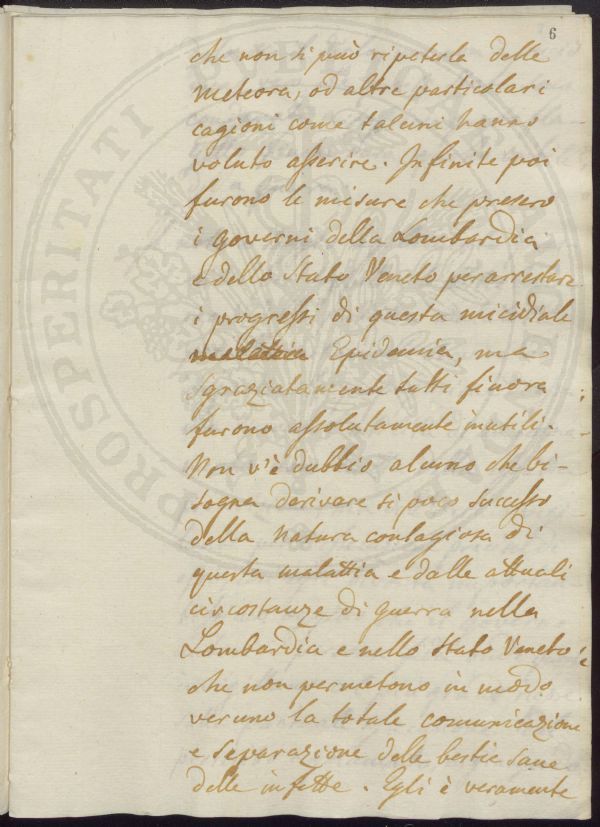 6
che non si può ripeterla delle
meteora, od altre particolari
cagioni come taluni hanno
voluto asserire. Infinite poi
furono le misure che presero
i governi della Lombardia
e dello Stato Veneto per arrestare
i progressi di questa micidiale
malattia Epidemia, ma
sgraziatamente tutti finora
furono assolutamente inutili.
Non v'è dubbio alcuno che bi-
sogna derivare si poco successo
della natura contagiosa di
questa malattia e dalle attuali
circostanze di guerra nella
Lombardia e nello Stato Veneto
che non permetono in modo
veruno la totale comunicazione
e separazione delle bestie sane
delle infette. Egli è veramente
PROSPERITATI